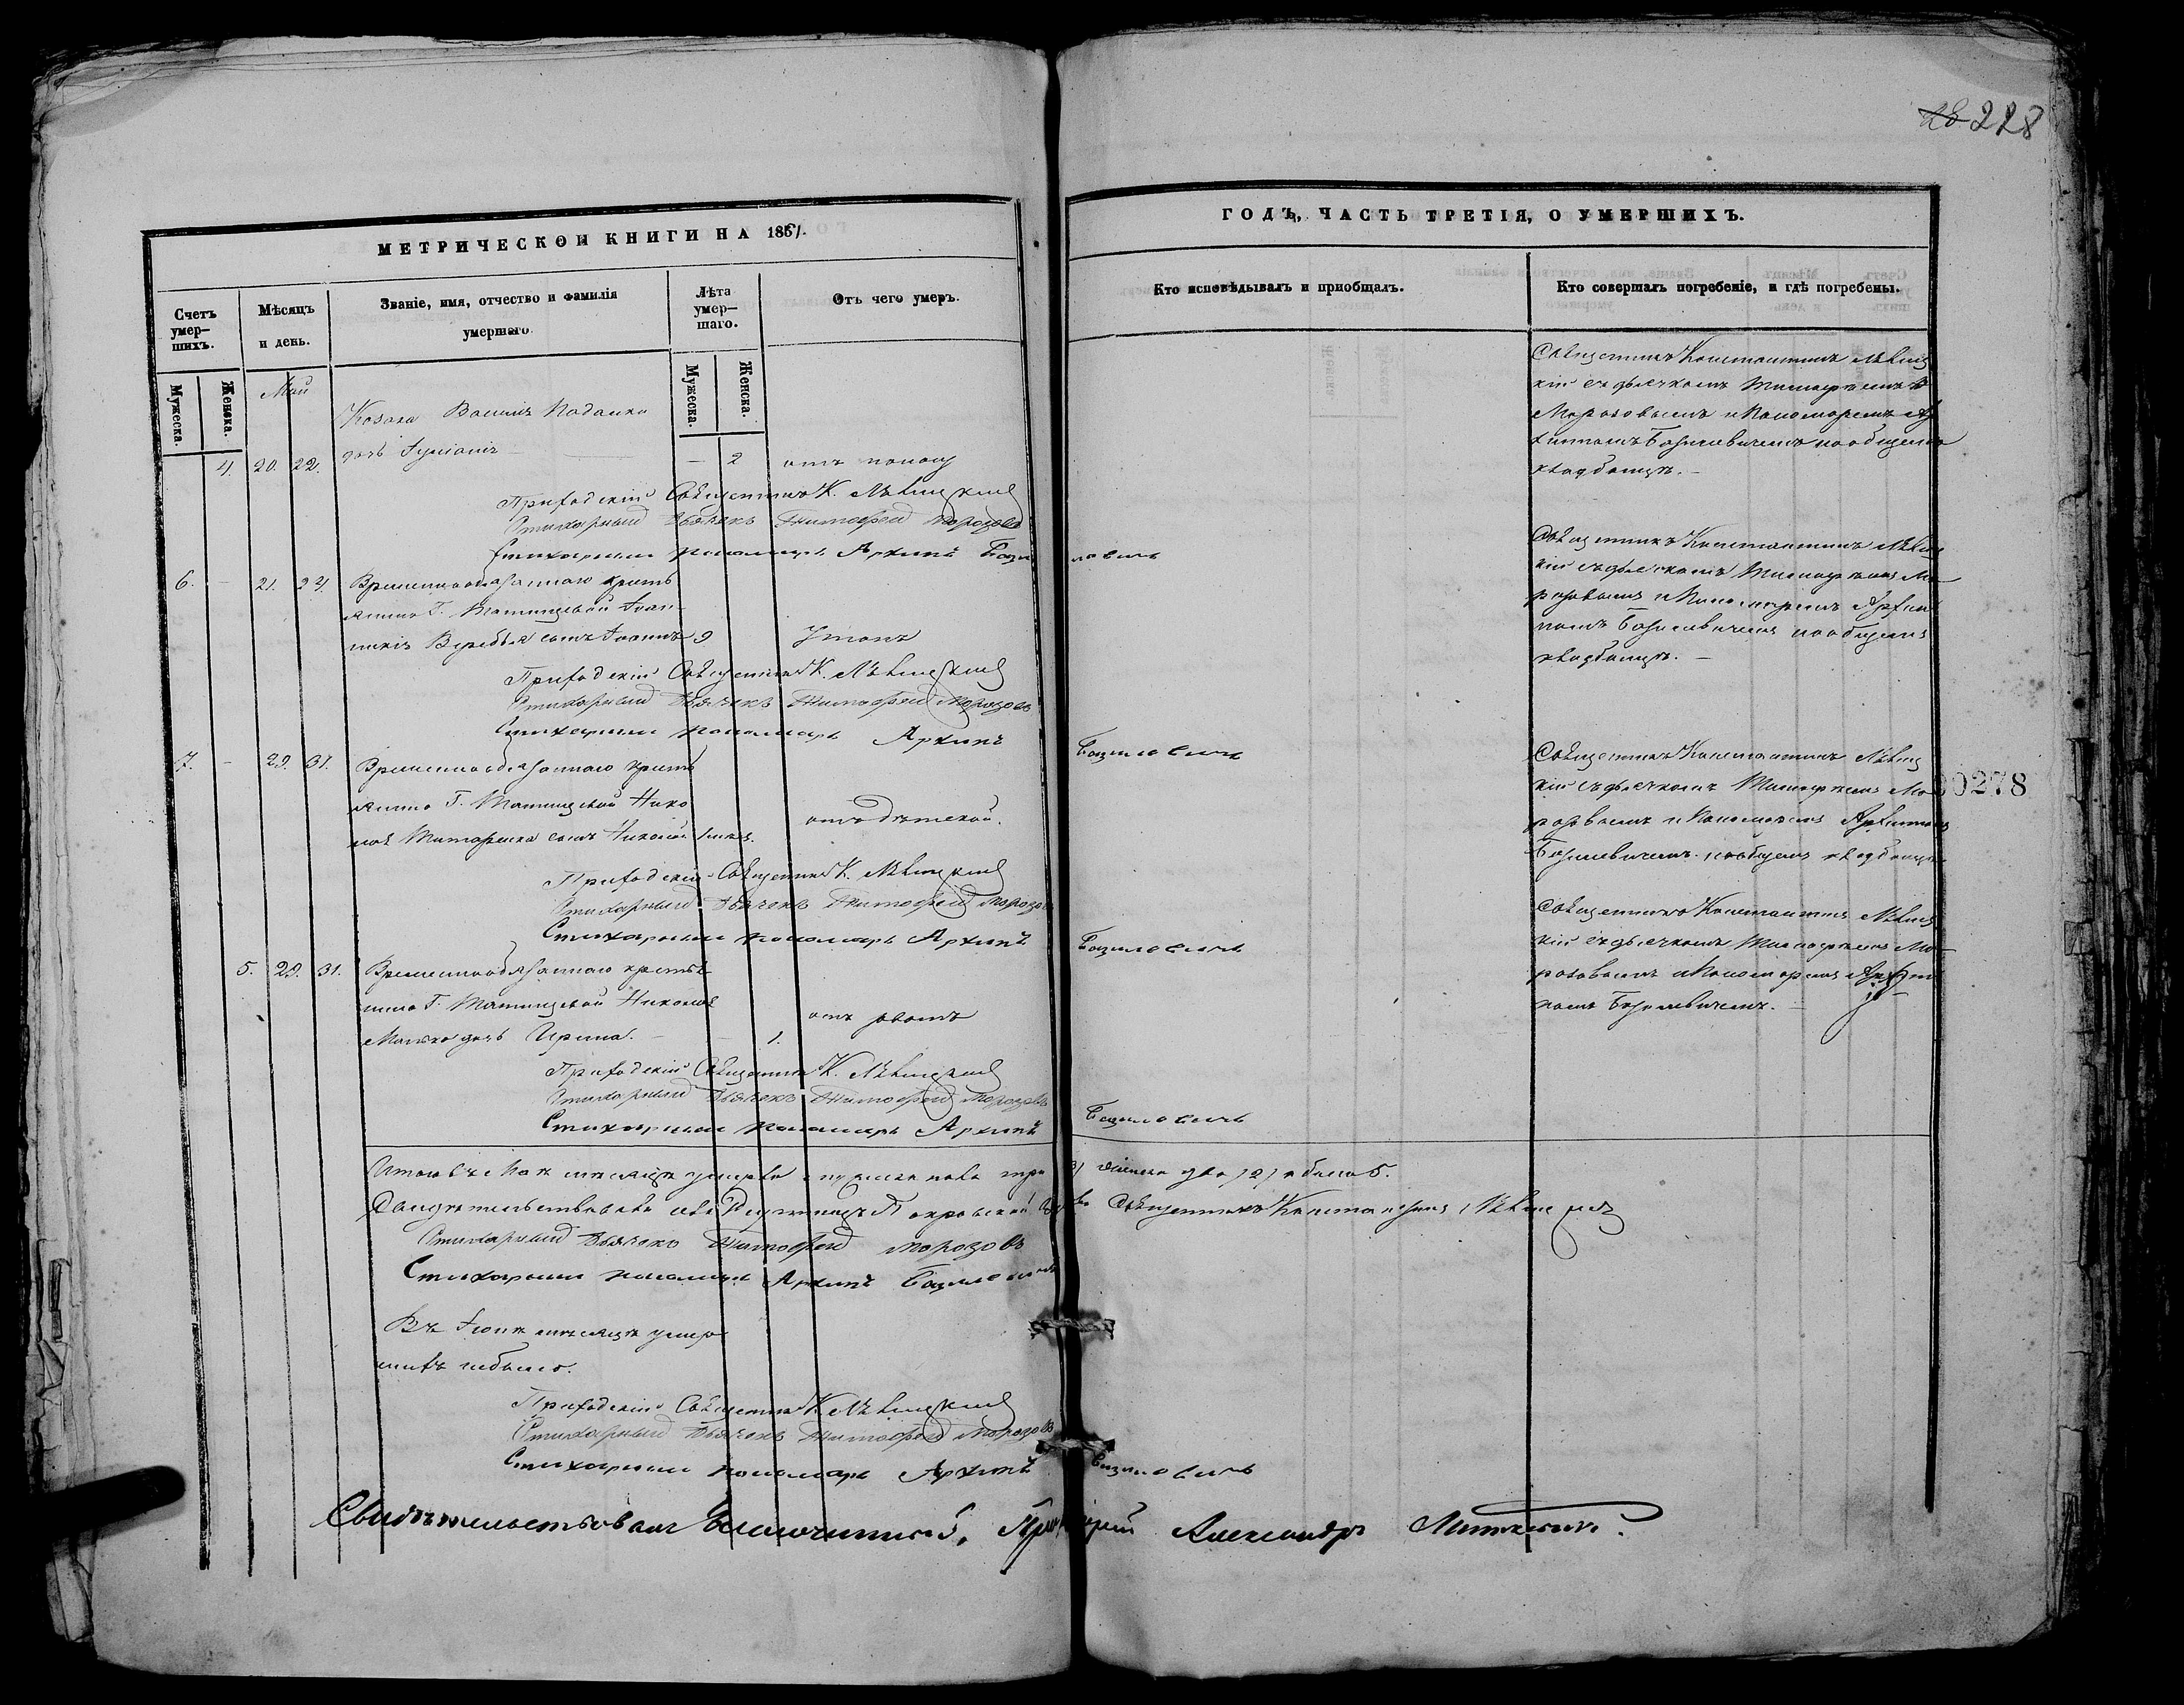 228
МЕТРИЧЕСКОЙ КНИГИ НА 1861.
ГОДЪ, ЧАСТЬ ТРЕТІЯ, О УМЕРШИХЪ.
Счетъ умер-шихъ.
Мѣсяцъ и день.
Званіе, имя, отчество и фамилія умершаго.
Лѣта умер-шаго.
Отъ чего умеръ.
Кто исповѣдывалъ и приобщалъ.
Кто совершалъ погребеніе, и гдѣ погребены.
Мужеска. Женска.
Мужеска. Женска.
Май
Козака
дочь
4. 20. 22. — 2 отъ поносу
Священникъ Константинъ Лѣвиц
кій съ дьячкомъ Тимофеемъ
Морозовымъ и Пономаремъ Ар
хиппомъ Базилевичемъ на общемъ
кладбищѣ. —
Приходскій Священникъ К. Лѣвицкій
Стихарный Дьячекъ Тимофей Морозовъ
Стихарный пономарь Архипъ Базилевичъ
6. — 21. 24. Временнообязаннаго кресть
янина Г. Татищевой Іоан-
никія Веребья сынъ Іоаннъ 9 Утонъ
Священникъ Константинъ Лѣвиц
кій съ дьячкомъ Тимофеемъ Мо-
розовымъ и Пономаремъ Архип
помъ Базилевичемъ на общемъ
кладбищѣ. —
Приходскій Священникъ К. Лѣвицкій
Стихарный Дьячекъ Тимофей Морозовъ
Стихарный пономарь Архипъ Базилевичъ
7. — 29. 31. Временнообязаннаго кресть
янина Г. Татищевой Нико
лая сынъ Николай отъ дѣтской.
Священникъ Константинъ Лѣвиц
кій съ дьячкомъ Тимофеемъ Мо
розовымъ и Пономаремъ Архиппомъ
Базилевичемъ на общемъ кладбищѣ
0278
Приходскій Священникъ К. Лѣвицкій
Стихарный Дьячекъ Тимофей Морозовъ
Стихарный пономарь Архипъ Базилевичъ
5. 29. 31. Временнообязаннаго крестья
нина Г. Татищевой Николая
дочь Ирина. — — 1. отъ
Священникъ Константинъ Лѣвиц
кій съ дьячкомъ Тимофеемъ Мо-
розовымъ и Пономаремъ Архип
помъ Базилевичемъ. —
Приходскій Священникъ К. Лѣвицкій
Стихарный Дьячекъ Тимофей Морозовъ
Стихарный пономарь Архипъ Базилевичъ
Итого въ Маѣ мѣсяцѣ умерло мужеска пола три 3) женска два /2/ а обоего 5.
Свидѣтельствовалъ Покровской Священникъ Константинъ Лѣвицкій
Стихарный Дьячекъ Тимофей Морозовъ
Стихарный пономарь Архипъ Базилевичъ
Въ Іюнѣ мѣсяцѣ умер
шихъ небыло.
Приходскій Священникъ К. Лѣвицкій
Стихарный Дьячекъ Тимофей Морозовъ
Стихарный пономарь Архипъ Базилевичъ
Свидѣтельствовалъ Благочинный, Протоіерей Александръ